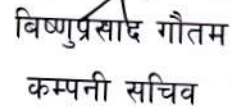 विष्णुप्रसाद गौतम
कम्पनी सचिव